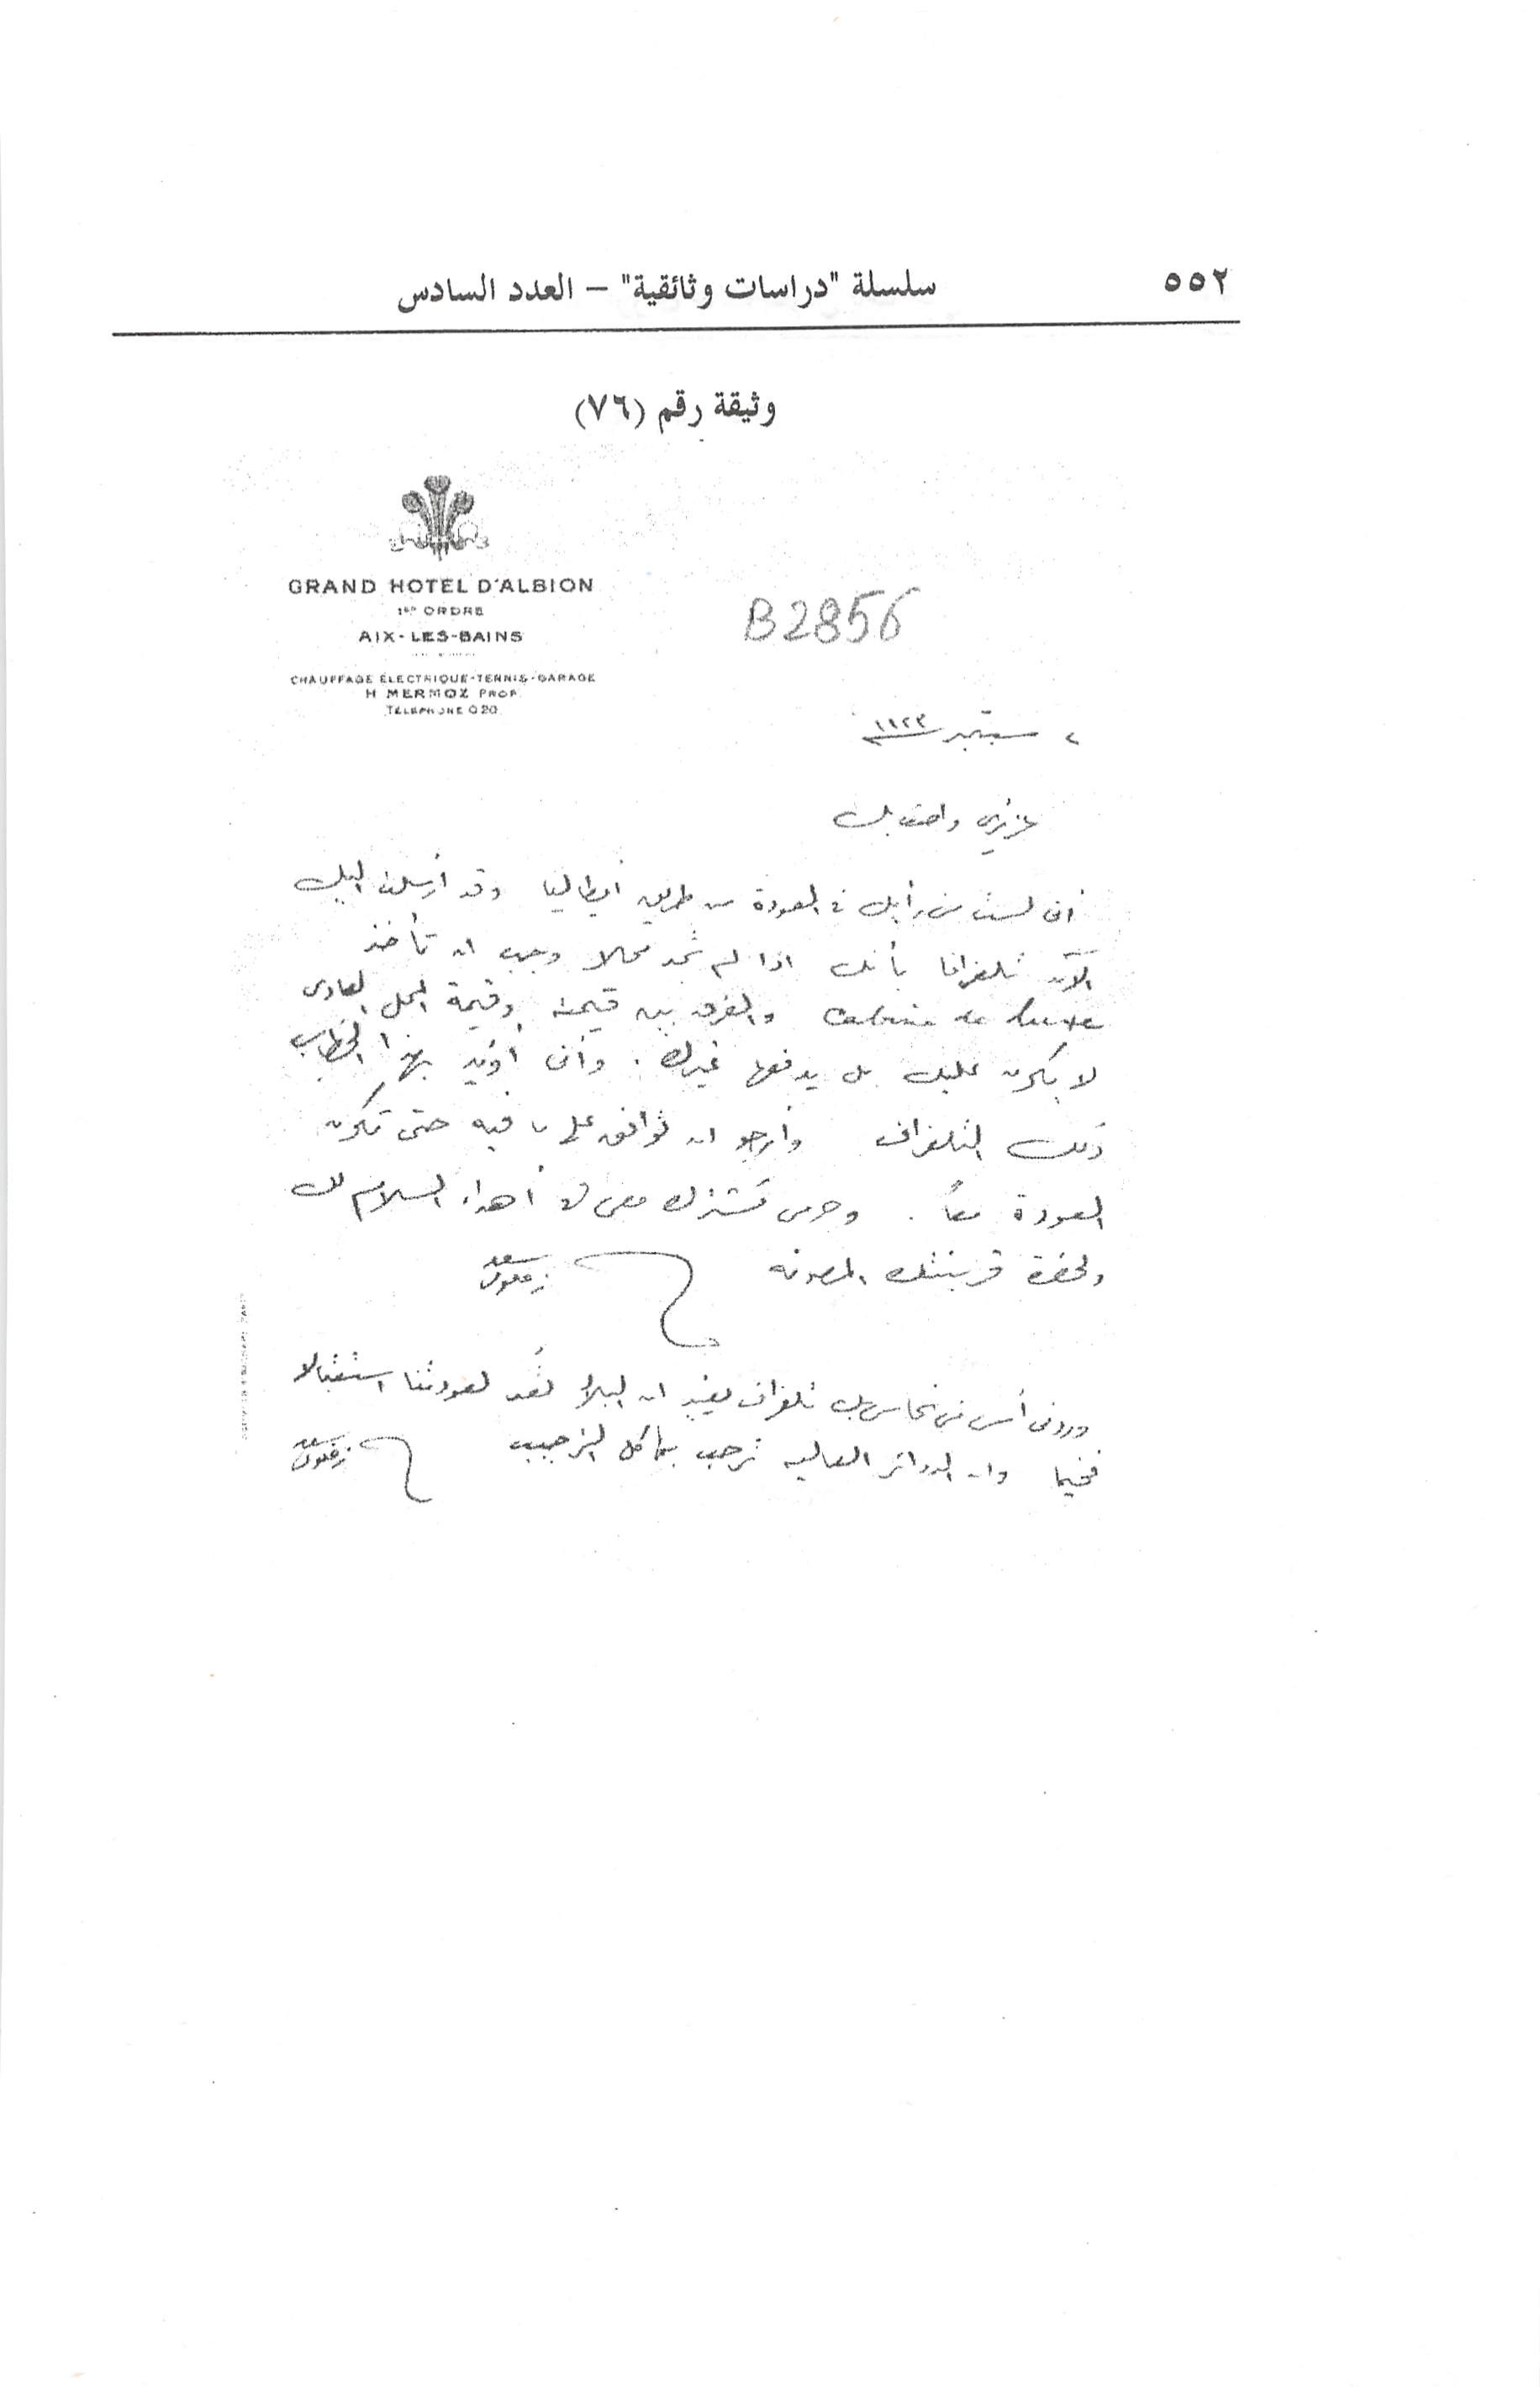 ٥٥٢
سلسلة "دراسات وثائقية" – العدد السادس
وثيقة رقم (٧٦)
GRAND HOTEL D'ALBION
1er ORDRE
AIX-LES-BAINS
CHAUFFAGE ÉLECTRIQUE-TENNIS-GARAGE
H MERMOZ PROP.
TÉLÉPHONE 0 20
B2856
٢ سبتمبر ١٩٢٣
عزيزي واصف بك
أنى لست من رأيك فى العودة من طريق أيطاليا وقد أرسلت اليك
الآن تلغرافا بأنك اذا لم تجد محلا وجب ان تأخذ
Cabine de luxe والفرق بين قيمته وقيمة المحل العادى
لا يكون عليك بل يدفعها غيرك . وأنى أؤيد بهذا الخطاب
ذلك التلغراف وأرجو ان توافق على ما فيه حتى تكون
العودة معاً . وحرمى تشترك معى فى أهداء السلام لك
ولحضرة قرينتك المصونه
سعد زغلول
وردنى أمس من نحاس بك تلغراف يفيد ان البلاد تعد لعودتنا استقبالا
فخيما وان الدوائر العاليه ترحب بها كل الترحيب
سعد زغلول